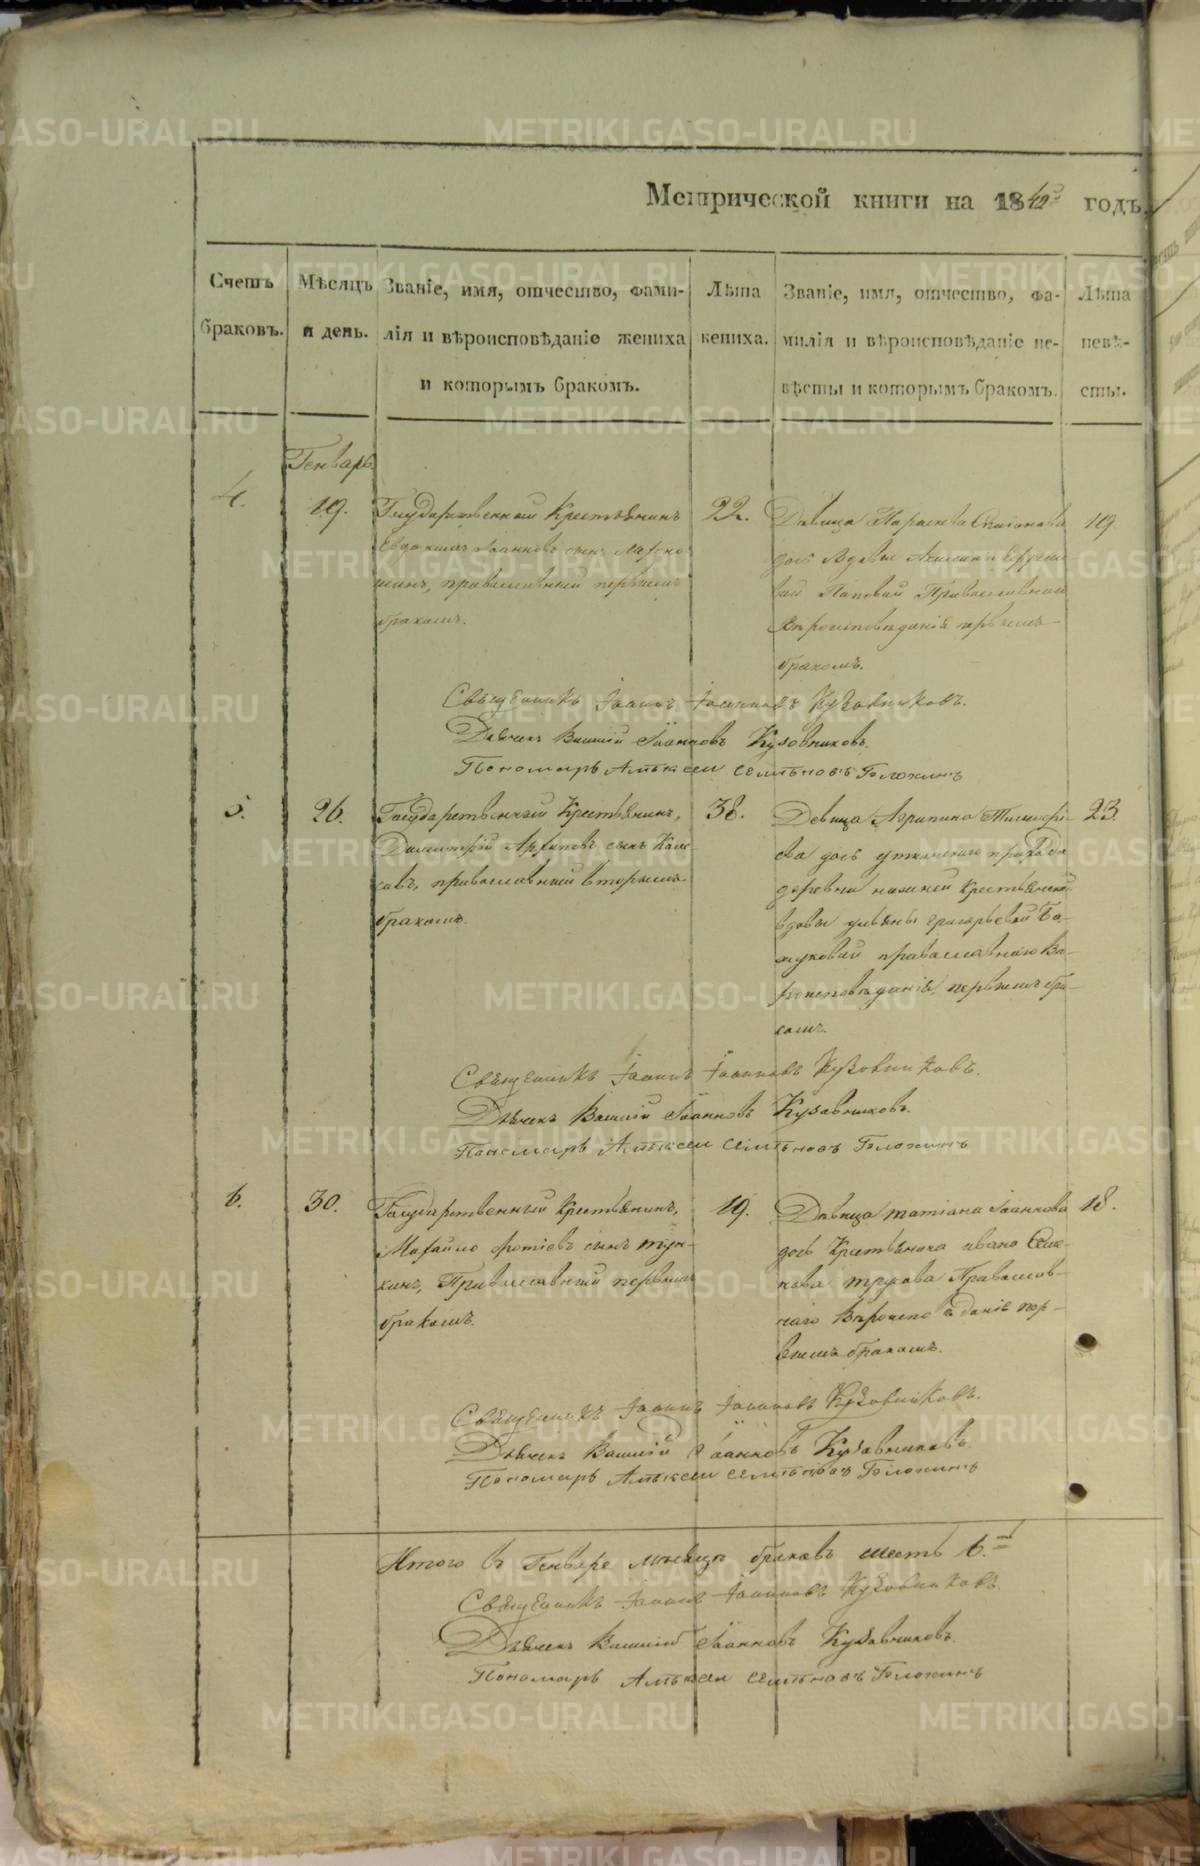 Метрической книги на 1842 годъ,
Счетъ браковъ.
Мѣсяцъ и день.
Званіе, имя, отчество, фами-
лія и вѣроисповѣданіе жениха
и которымъ бракомъ.
Лѣта жениха.
Званіе, имя, отчество, фа-
милія и вѣроисповѣданіе не-
вѣсты и которымъ бракомъ.
Лѣта невѣ-
сты.
Генварь.
4.
19.
Государственный Крестьянинъ
Евдокимъ Іоанновъ сынъ
православный первымъ
бракомъ.
22.
Дѣвица Параскева
дочь Вдовы
Поповой Православнаго
вѣроисповѣданія первымъ
бракомъ.
19.
Священникъ Іоаннъ Іоанновъ Кузовниковъ.
Дьячекъ Василій Іоанновъ Кузовниковъ.
Пономарь Алѣксеи Семѣновъ Голохинъ
5.
26.
Государственный Крестьянинъ,
Димитрій Архиповъ сынъ
православный вторымъ
бракомъ.
38.
Девица Агрипина Тимофі-
ева дочь уткинскаго прихода
деревни нижней Крестьянской
вдовы ульяны григорьевой Ба-
жуковой православнаго Вѣ-
роисповѣданія, первымъ бра-
комъ.
23.
Священникъ Іоаннъ Іоанновъ Кузовниковъ.
Дьячекъ Василій Іоанновъ Кузовниковъ.
Пономарь Алѣксеи Семѣновъ Голохинъ
6.
30.
Государственный Крестьянинъ,
Михайло фотіевъ сынъ тун-
кинъ, Православный первымъ
бракомъ.
19.
Дѣвица татіана Іоаннова
дочь Крестьянина ивана Семе-
нова трукова Православ-
наго Вѣроисповѣданія пер-
вымъ бракомъ.
18.
Священникъ Іоаннъ Іоанновъ Кузовниковъ.
Дьячекъ Василій Іоанновъ Кузовниковъ.
Пономарь Алѣксеи Семѣновъ Голохинъ
Итого въ Генваре мѣсяцѣ браковъ шесть 6.
Священникъ Іоаннъ Іоанновъ Кузовниковъ.
Дьячекъ Василій Іоанновъ Кузовниковъ.
Пономарь Алѣксеи Семѣновъ Голохинъ
METRIKI.GASO-URAL.RU